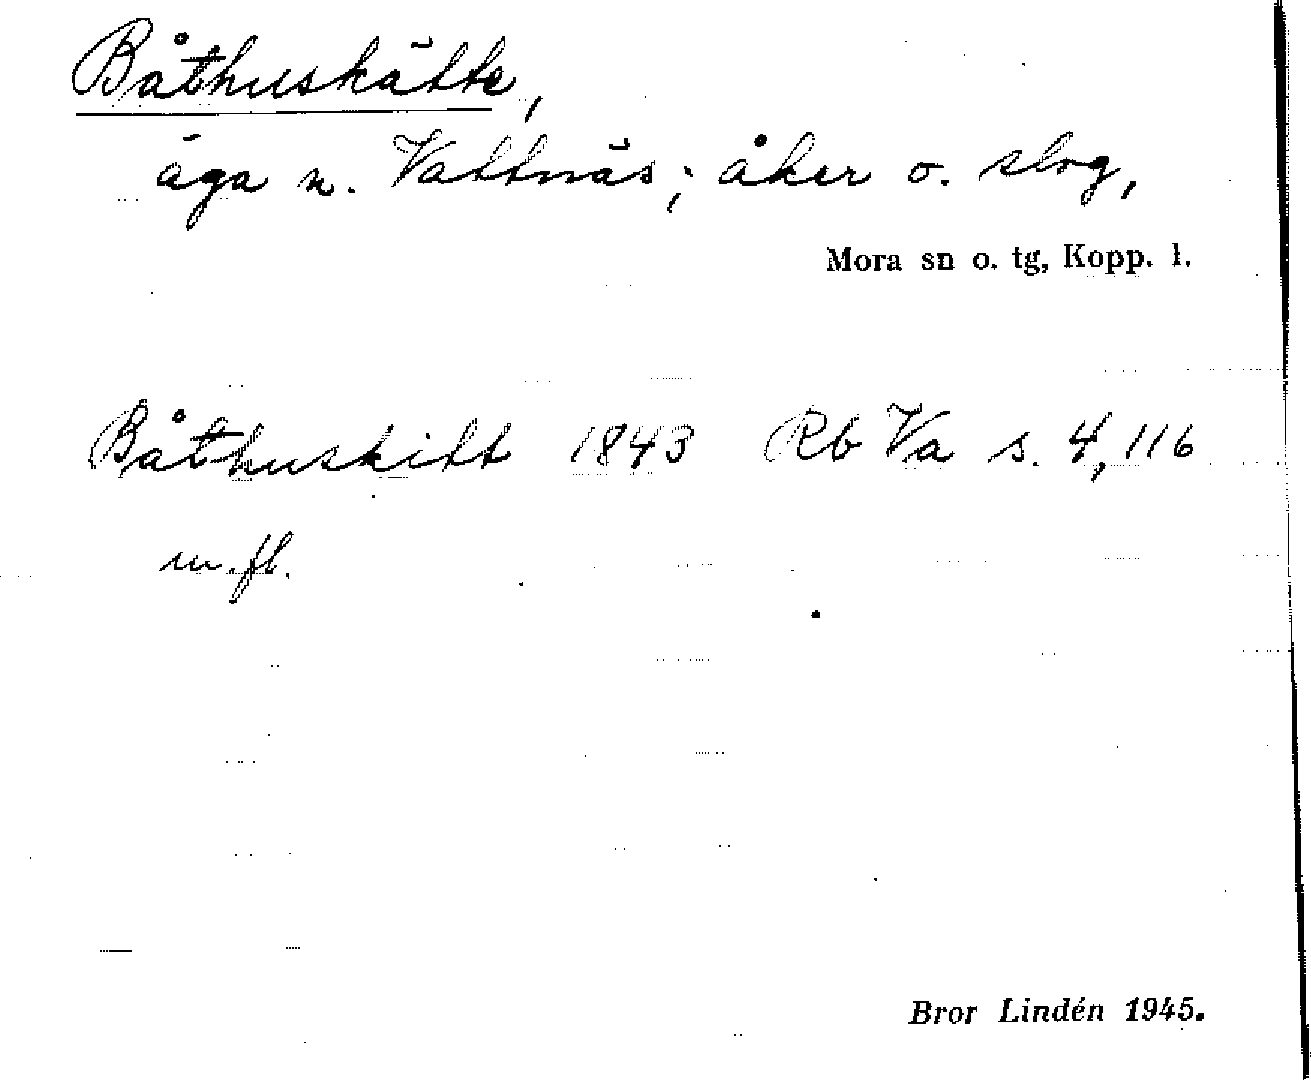 Båthuskätte,
äga n. Vattnäs; åker o. slog,
Mora sn o. tg, Kopp. l.
Båthuskitt 1843 Rb Va s. 4, 116
m. fl.
Bror Lindén 1945.